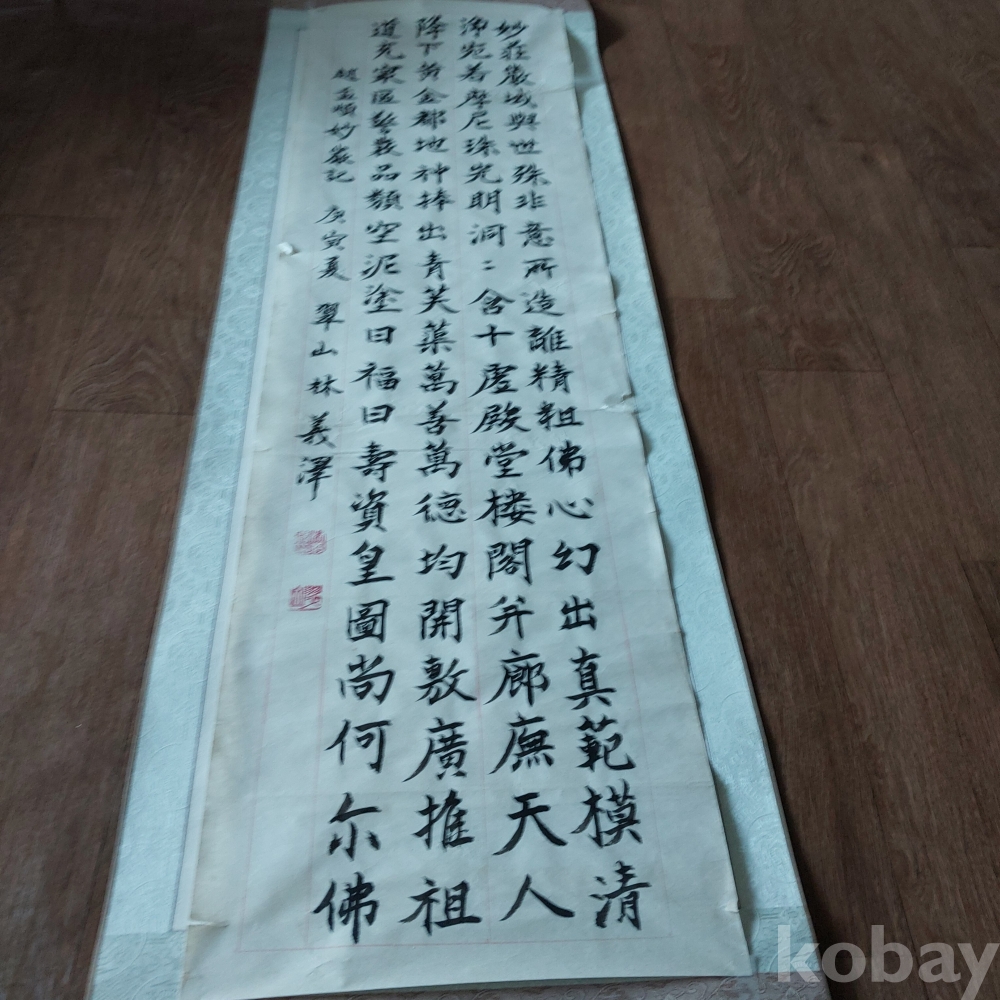 妙莊嚴域與世殊非意所造離精粗佛心幻出真範模清
淨宛若摩尼珠光明洞〻含十虛殿堂楼閣并廊廡天人
降下黄金都地神捧出青芙蕖萬善萬德均開敷廣推祖
道充寰區警發品類空泥塗曰福曰壽資皇圖尚何尔佛
趙孟頫妙嚴記 庚寅夏 翠山 林義澤
kobay